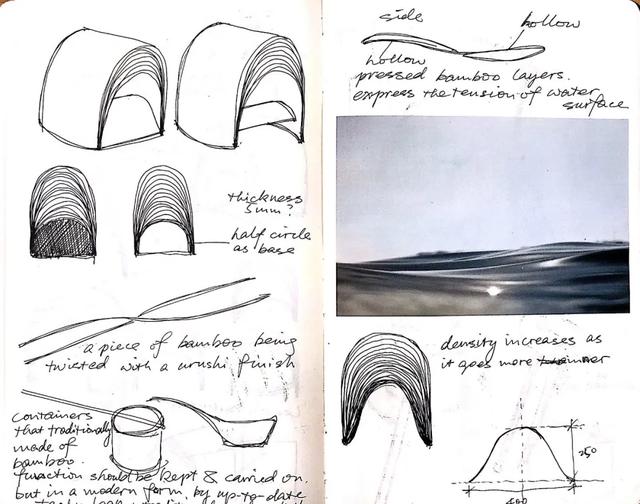 thickness
5mm?
half circle
as base
a piece of bamboo being
twisted with a urushi finish
containers
that traditionally
made of
bamboo.
function should be kept & carried on.
but in a modern form, by up-to-date
side
hollow
hollow
pressed bamboo layers.
express the tension of water
surface
density increases as
it goes more inner
250
400